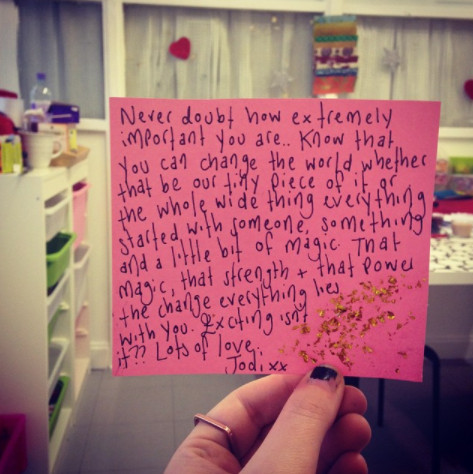 Never doubt how extremely
important you are.. Know that
you can change the world whether
that be our tiny piece of it or
the whole wide thing everything
started with someone, something
and a little bit of magic. That
magic, that strength + that power
the change everything lies
with you. Exciting isnt
it?? Lots of love,
Jodi xx